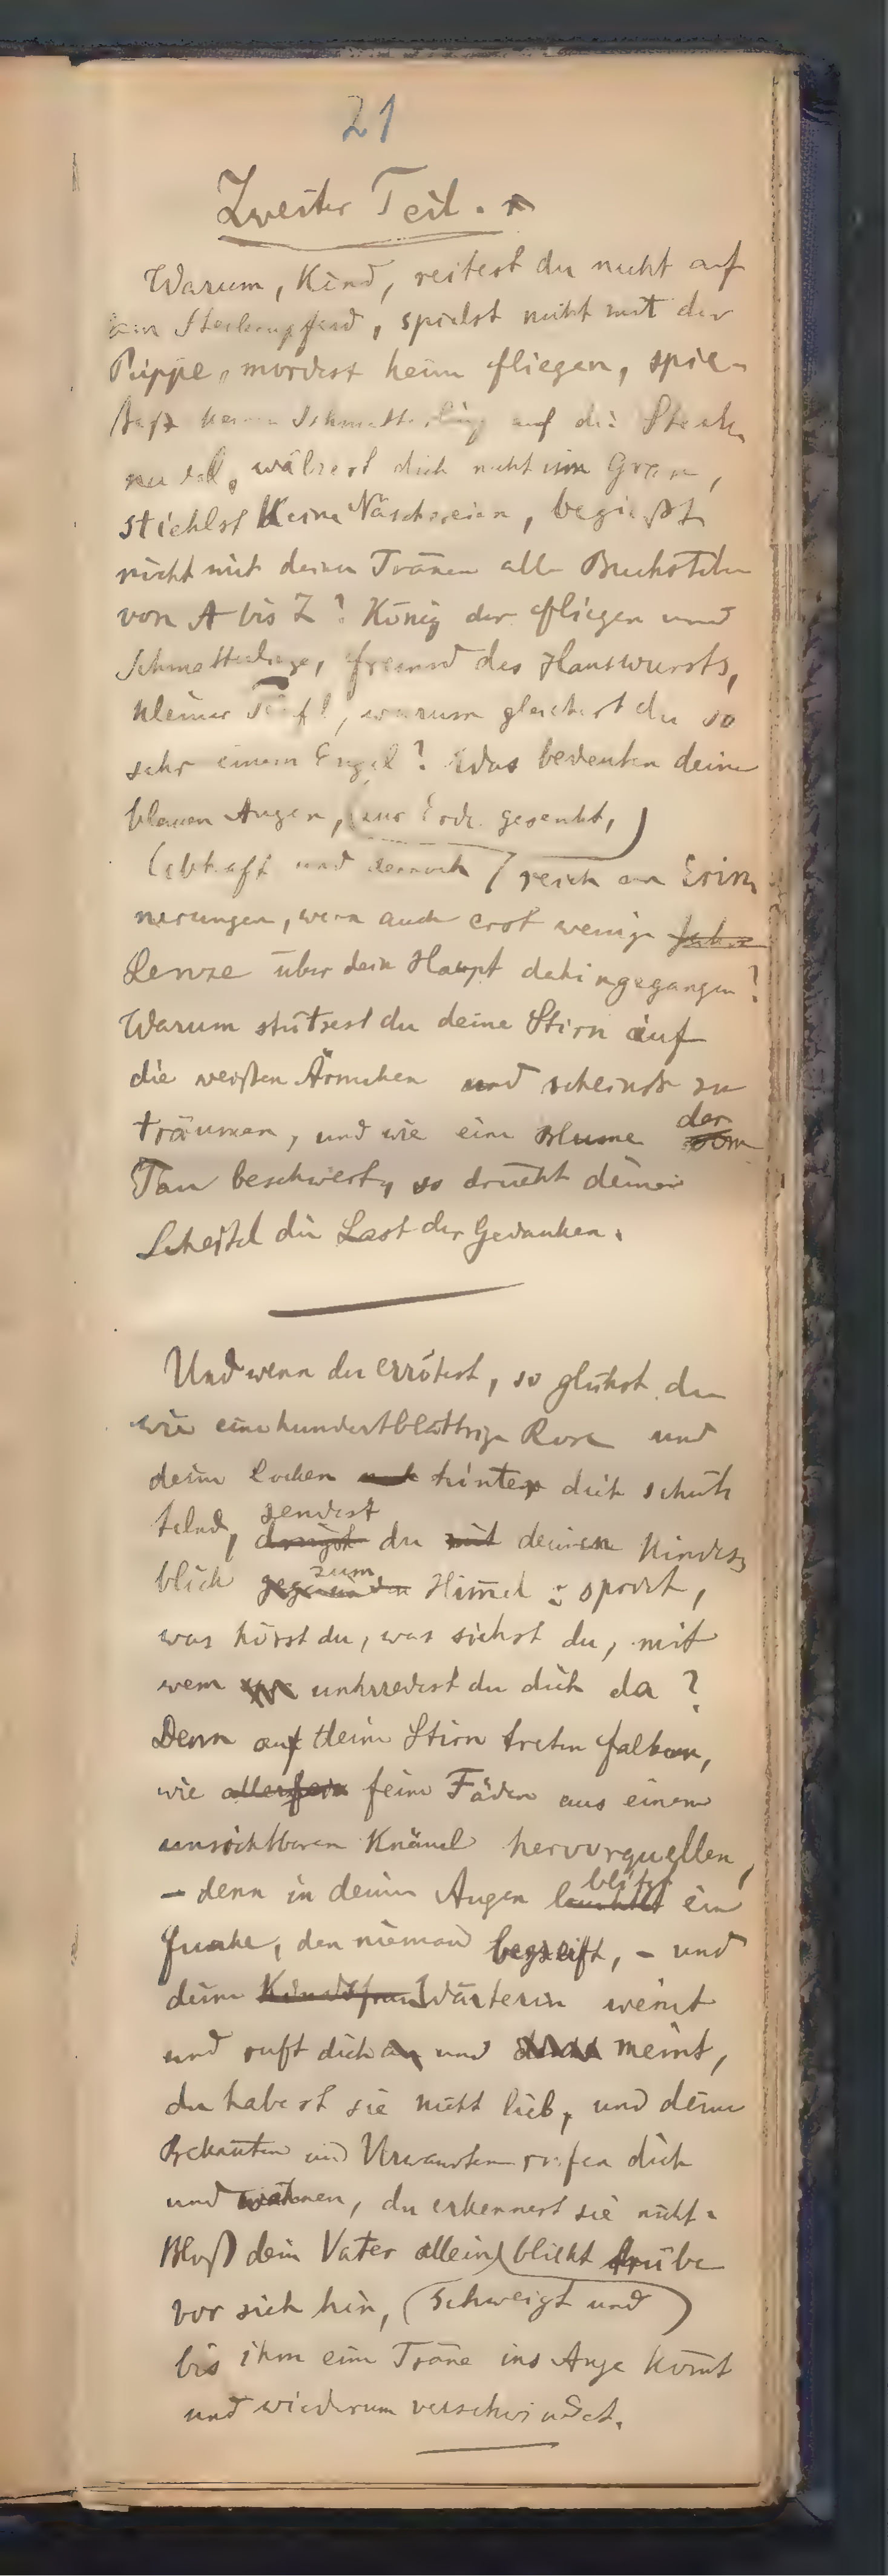 21
Zweiter Teil.
Warum, Kind, reitest du nicht auf
dem Steckenpferd, spielst nicht mit der
Puppe, mordest keine Fliegen, spie-
ßest keinen Schmetterling auf die Steck
nadel, wälzest dich nicht im Grase,
stiehlst keine Näschereien, begießt
nicht mit deinen Tränen alle Buchstaben
von A bis Z? König der Fliegen und
Schmetterlinge, Freund des Hanswursts,
kleiner Teufel, warum gleichest du so
sehr einem Engel? Was bedeuten deine
blauen Augen, (zur Erde gesenkt,)
lebhaft und dennoch / reich an Erin
nerungen, wenn auch erst wenige Jahre
Lenze über dein Haupt dahingegangen?
Warum stützest du deine Stirn auf
die weißen Ärmchen und scheinst zu
träumen, und wie eine Blume der
vom
Tau beschwert, so drückt deinen
Scheitel die Last der Gedanken.
Und wenn du errötest, so glühst du
wie eine hundertblättrige Rose und
deine Locken nach hinter dich schüt
telnd, sendest
dringst du mit deinen Kindes
blick gegen den zum Himmel: sprich,
was hörst du, was siehst du, mit
wem unterredest du dich da?
Denn auf deine Stirn treten Falten,
wie feine Fäden aus einem
unsichtbaren Knäuel hervorquellen,
– denn in deinen Augen leuchtet blitzt ein
Funke, den niemand begreift, – und
deine Kindsfrau Wärterin weint
und ruft dich an und meint,
du habest sie nicht lieb, und deine
Bekanten und Verwandten rufen dich
und wähnen, du erkennest sie nicht.
Bloß dein Vater allein (blickt trübe
vor sich hin, (schweigt und)
bis ihm eine Träne ins Auge komt
und wiederum verschwindet.